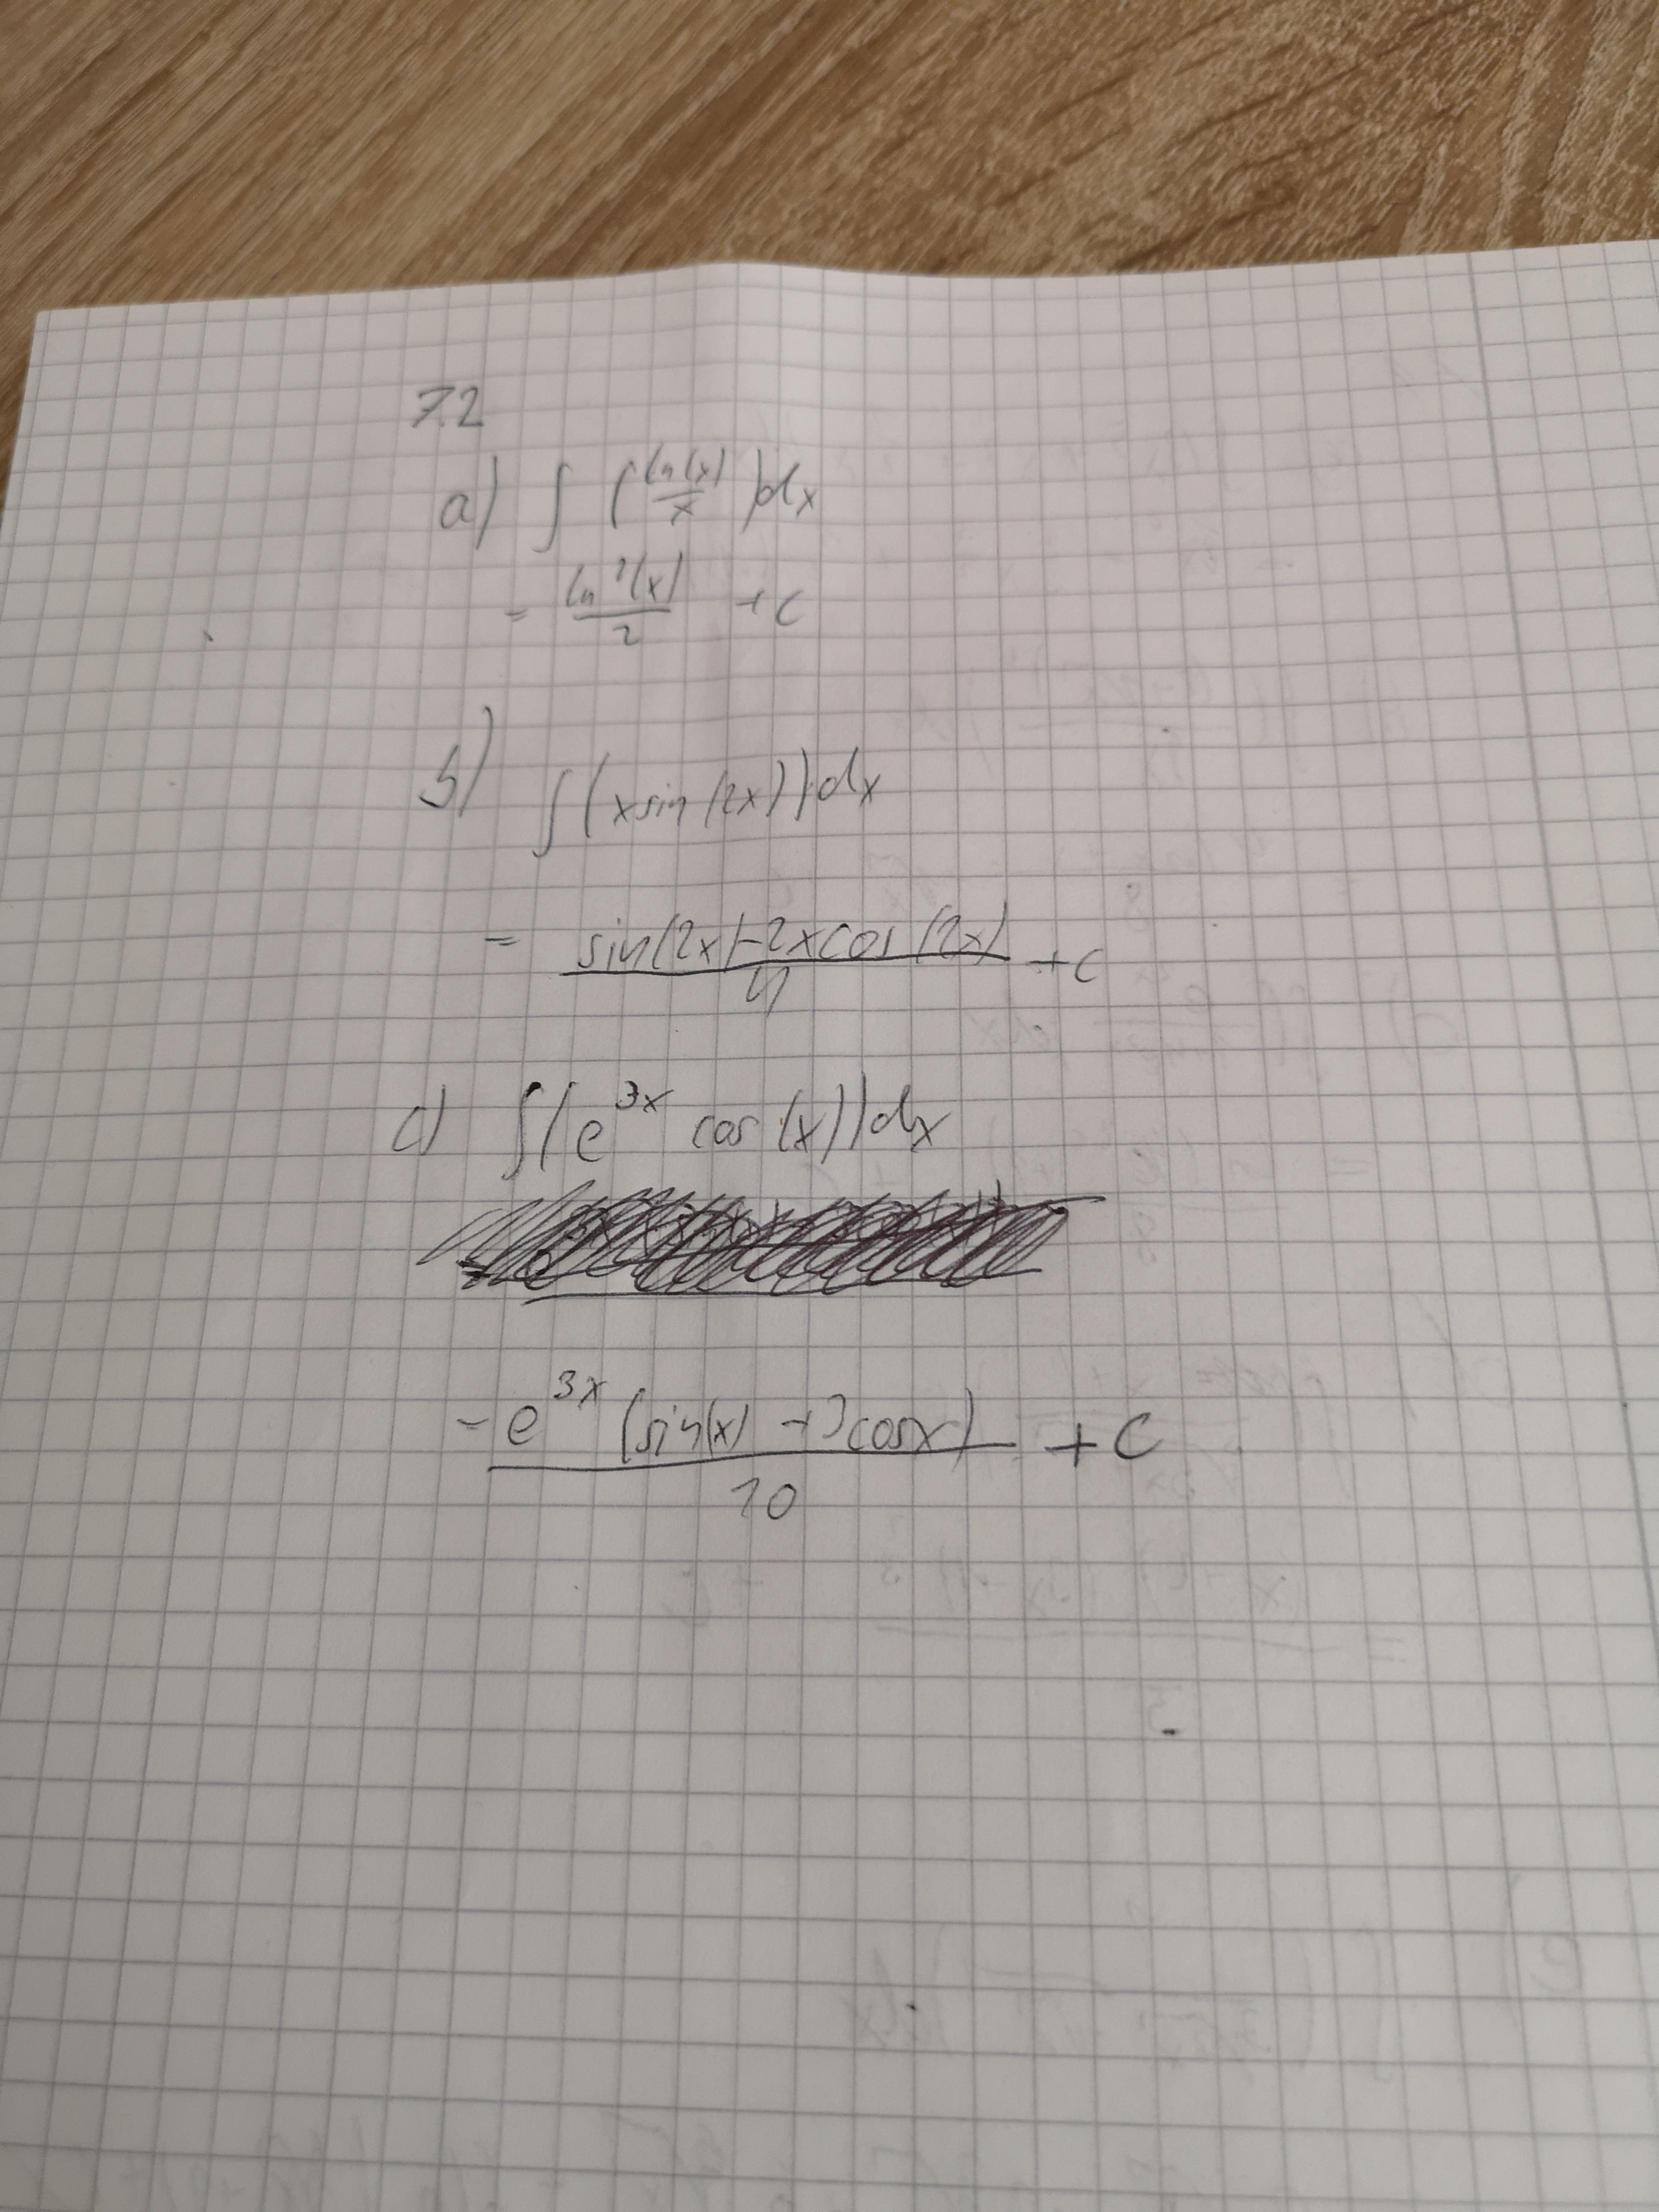 7.2
a) ∫ (ln(x)/x) dx
= ln²(x)/2 + c
b) ∫(x sin(2x)) dx
= sin(2x)-2x cos(2x)/4 + c
c) ∫(e^3x cos(x)) dx
= e^3x (sin(x) + 3cosx)/10 + C